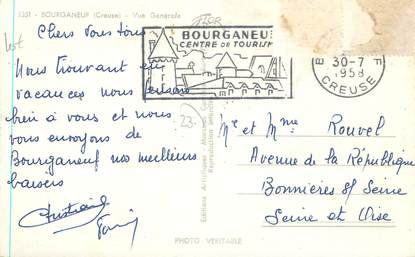 5351 - BOURGANEUF (Creuse) - Vue Générale
Chers vous tous
Nous trouvant en
vacances nous pensons
bien à vous et nous
vous envoyons de
Bourganeuf nos meilleurs
baisers
BOURGANEUF
CENTRE DE TOURISM
30-7
1958
CREUSE
23-
Mr et Mme Rouvel
Avenue de la République
Bonnières s/ Seine
Seine et Oise
PHOTO VÉRITABLE